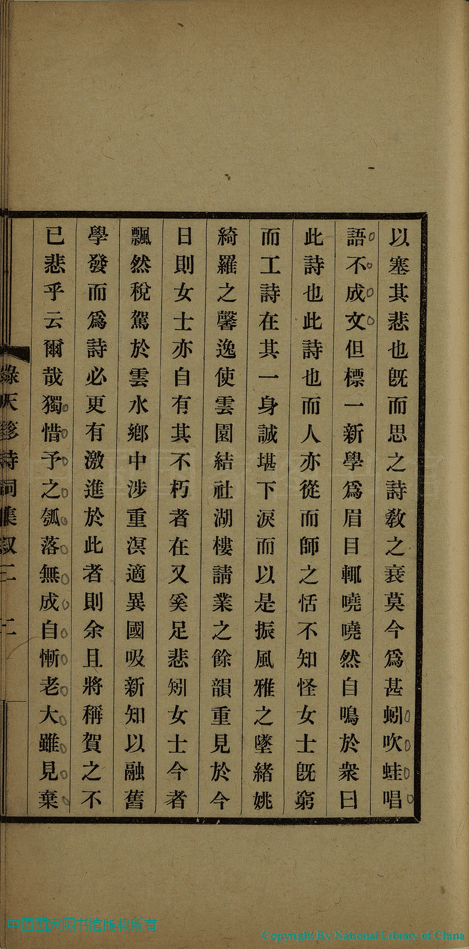 以塞其悲也既而思之詩敎之衰莫今爲甚蚓吹蛙唱
語不成文但標一新學爲眉目輒嘵嘵然自鳴於衆曰
此詩也此詩也而人亦從而師之恬不知怪女士既窮
而工詩在其一身誠堪下淚而以是振風雅之墜緒姚
綺羅之馨逸使雲園結社湖樓請業之餘韻重見於今
日則女士亦自有其不朽者在又奚足悲矧女士今者
飄然稅駕於雲水鄉中涉重溟適異國吸新知以融舊
學發而爲詩必更有激進於此者則余且將稱賀之不
已悲乎云爾哉獨惜予之瓠落無成自慚老大雖見棄
天 詩詞集敍二 二
Copyright By National Library of China